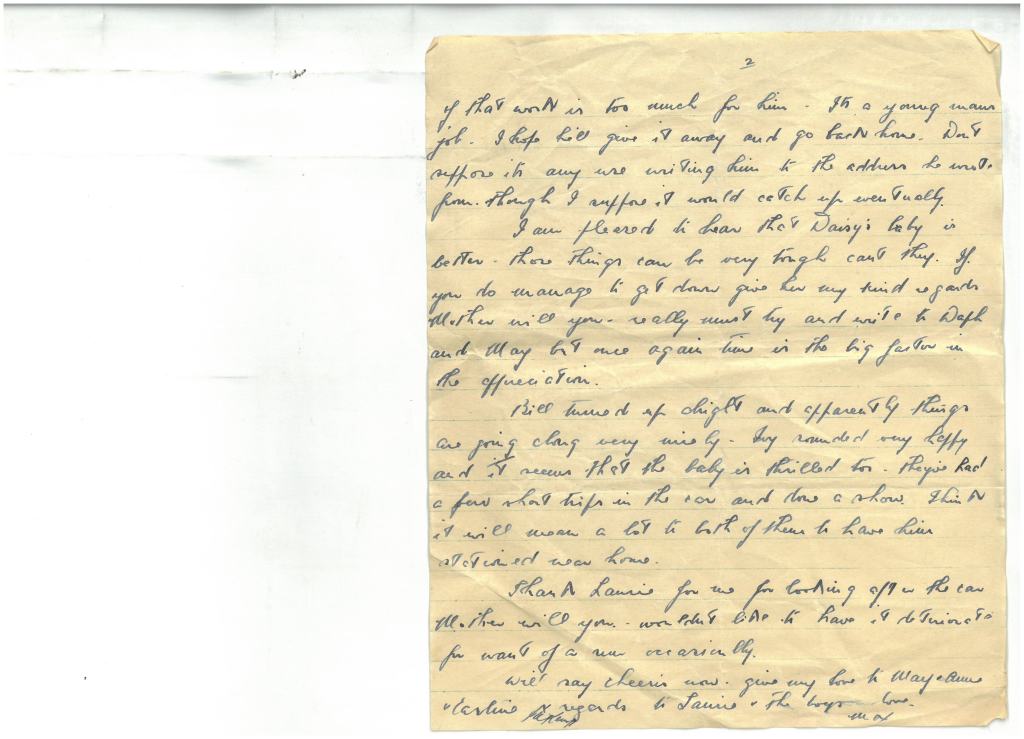 2
if that work is too much for him - Its a young mans
job. I hope he'll give it away and go back home. Don't
suppose its any use writing him to the address he wrote
from. though I suppose it would catch up eventually.
I am pleased to hear that Daisy's baby is
better - those things can be very tough can't they. If
you do manage to get down give her my kind regards
Mother will you - really must try and write to Daph
and May but once again time is the big factor in
the appreciation.
Bill turned up alright and apparently things
are going along very nicely - Ivy sounded very happy
and it seems that the baby is thrilled too - they've had
a few short trips in the car and done a show. Think
it will mean a lot to both of them to have him
stationed near home.
Thank Laurie for me for looking after the car
Mother will you - wouldn't like to have it deteriorate
for want of a run occasionally.
Will say cheerio now - give my love to May
regards to Laurie the boys love.
Max